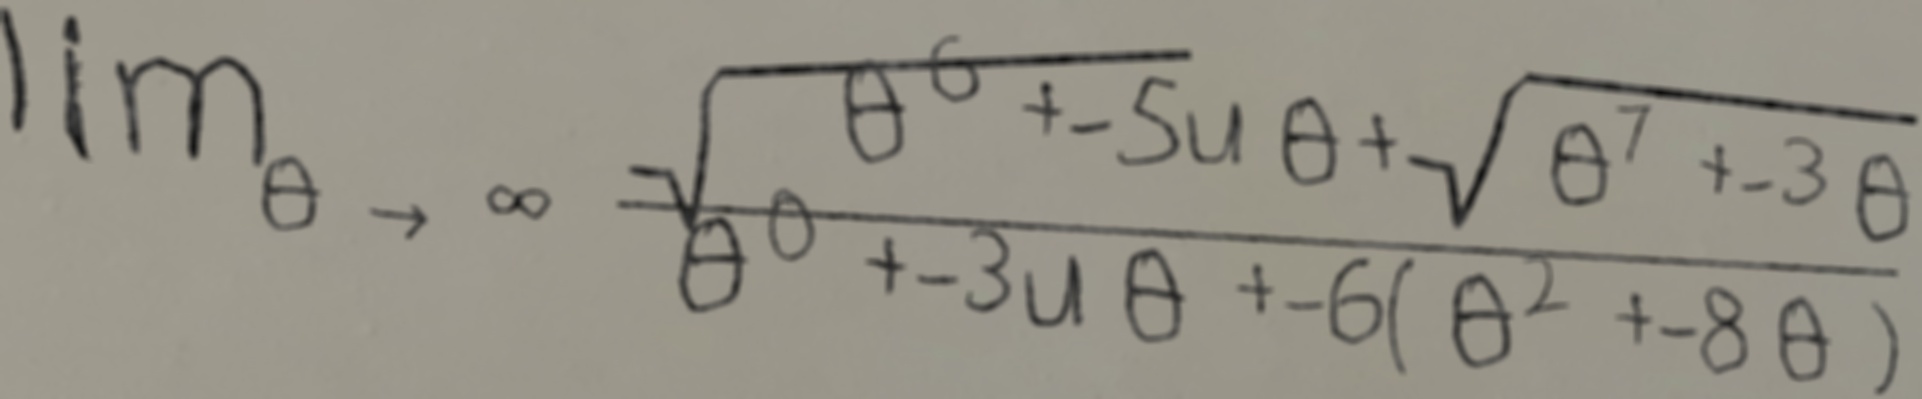 lim θ → ∞ √(θ^6 + -54 θ) + √(θ^7 + -3 θ)
θ^0 + -34 θ + -6(θ^2 + -8 θ)